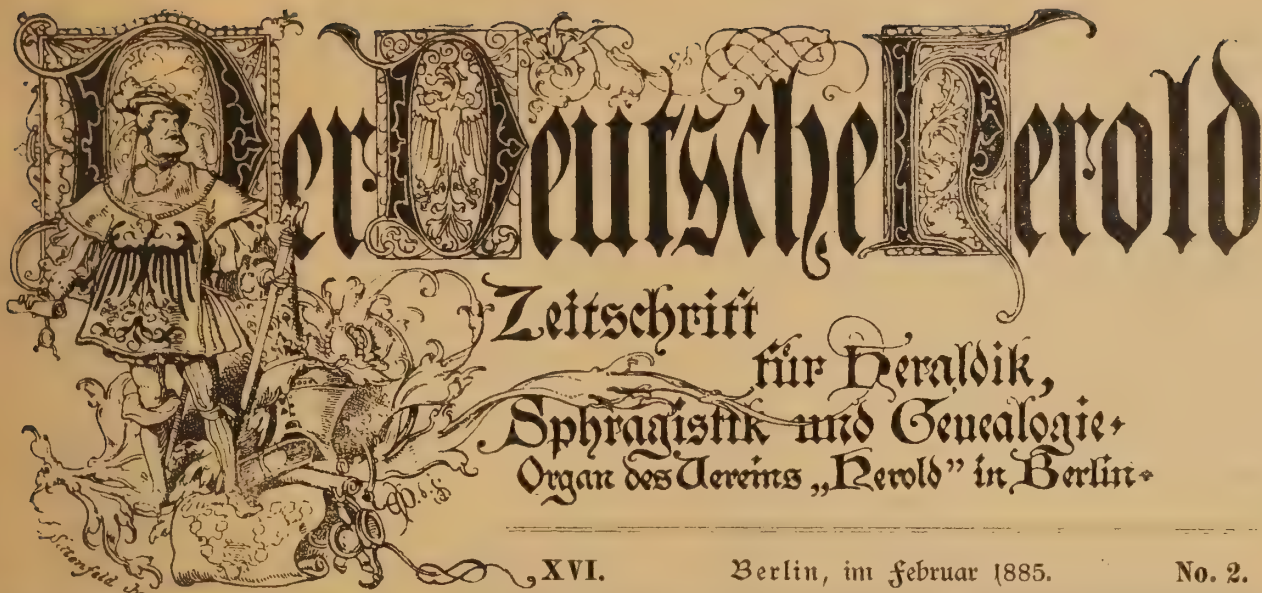 Der Deutsche Herold
Zeitschrift
für Heraldik,
Sphragistik und Genealogie.
Organ des Vereins „Herold” in Berlin.
XVI. Berlin, im Februar 1885. No. 2.